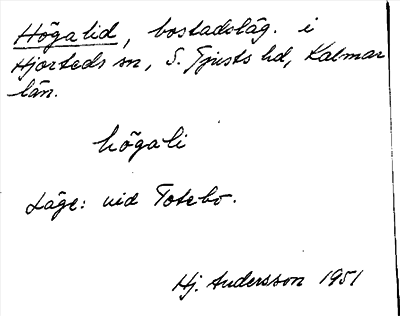 Högalid, bostadsläg. i
Hjorteds sn, S. Tjusts hd, Kalmar
län.
högali
Läge: vid Totebo.
Hj. Andersson 1951